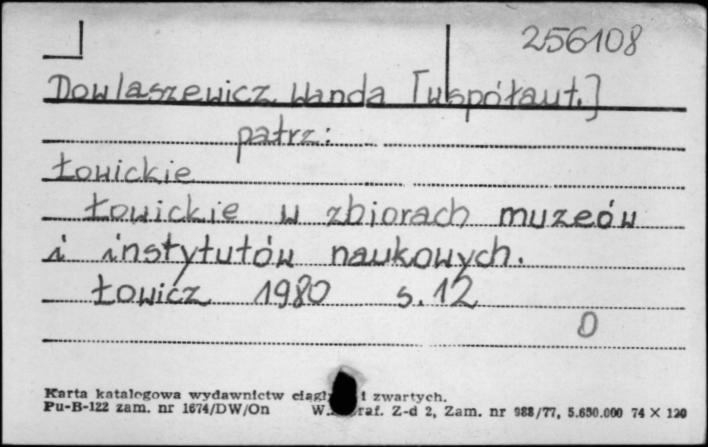 256108
Dowlaszewicz Wanda [współaut.]
patrz:
Łowickie
Łowickie w zbiorach muzeów
i instytutów naukowych.
Łowicz 1980 s. 12
0
Karta katalogowa wydawnictw i zwartych.
Pu-B-122 zam. nr 1674/DW/On Z-d 2, Zam. nr 988/77, 5.650.000 74 X 120